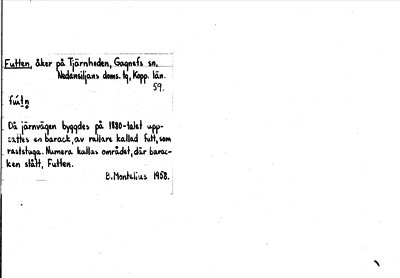 Futten, åker på Tjärnheden, Gagnefs sn.
Nedansiljans doms. tg, Kopp. län.
59.
fut:n
Då järnvägen byggdes på 1880-talet upp-
sattes en barack, av rallare kallad futt, som
raststuga. Numera kallas området, där barac-
ken stått, Futten.
B. Montelius 1958.